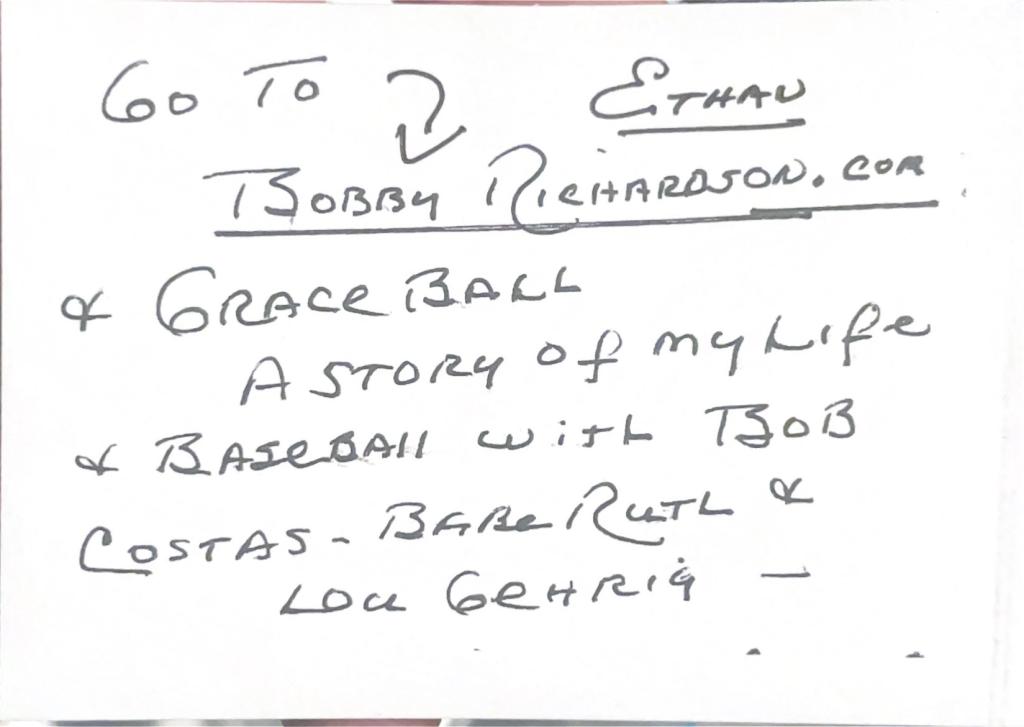 GO TO ETHAN
BOBBY RICHARDSON.COM
& GRACE BALL
A STORY OF MY LIFE
& BASEBALL WITH BOB
COSTAS - BABE RUTH &
LOU GEHRIG -